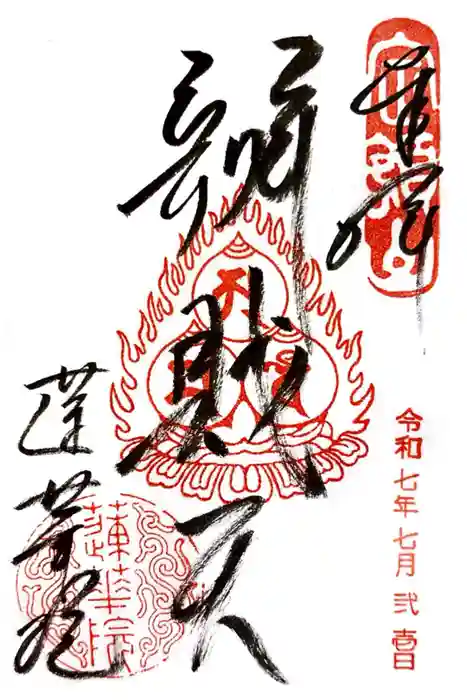 奉拝
令和七年七月弐壹日
辯財天
蓮華院
蓮華院